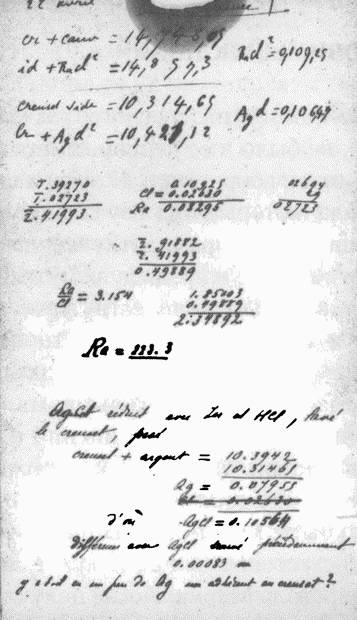 22 avril
cr + canu = 14,748,05
id + Rad² = 14,8573
Rad² = 0,10925
creuset vide = 10,314,65
Agd = 0,10647
cr + Agd² = 10,421,12
1.39270
1.02723
2.41993.
0.10925
Cl = 0.02630
Ra 0.08295
02723
2.91882
2.41993
0.49889
Ra/Cl = 3.154
1.85003
0.49889
2.34892
Ra = 223.3
AgCl réduit avec Zn et HCl, lavé
le creuset, pesé
creuset + argent = 10.3942
10.31461
Ag = 0.07955
Cl = 0.02630
d'où AgCl = 0.10564
différence avec AgCl pesé précédemment
0.00083
y a t-il eu un peu de Ag adhérent au creuset ?